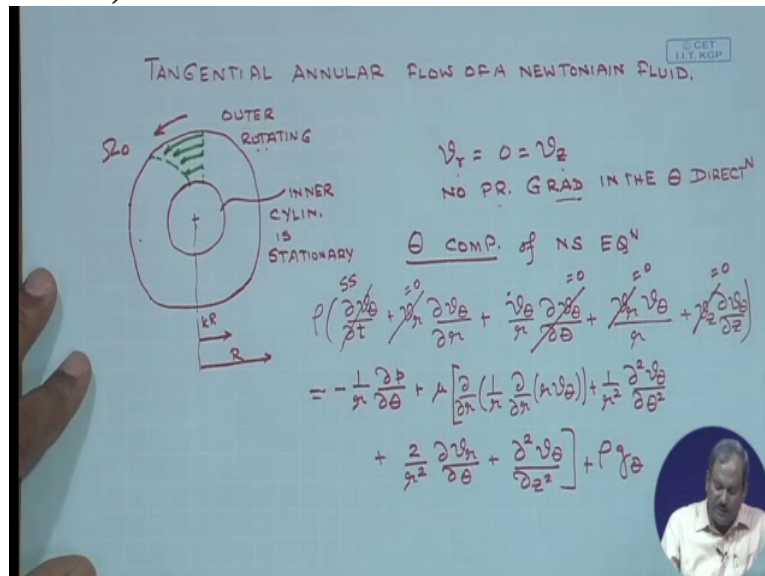 © CET
I.I.T. KGP
TANGENTIAL ANNULAR FLOW OF A NEWTONIAIN FLUID.
OUTER
ROTATING
Ω0
INNER
CYLIN.
IS
STATIONARY
kR
R
v_r = 0 = v_z
NO PR. GRAD IN THE θ DIRECT^N
θ COMP. of NS EQ^N
SS =0 =0 =0 =0
ρ(∂v_θ/∂t + v_r ∂v_θ/∂r + v_θ/r ∂v_θ/∂θ + v_r v_θ/r + v_z ∂v_θ/∂z)
= - 1/r ∂p/∂θ + μ[∂/∂r (1/r ∂/∂r (r v_θ)) + 1/r² ∂²v_θ/∂θ²
+ 2/r² ∂v_r/∂θ + ∂²v_θ/∂z²] + ρ g_θ